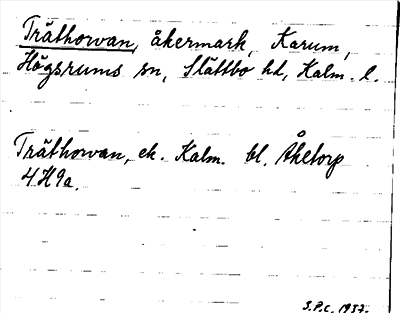 Träthorvan, åkermark, Karum,
Högsrums sn, Slättbo hd, Kalm. l.
Träthorvan, ek. Kalm. bl. Åketorp
4H9a.
S.P.C. 1937.